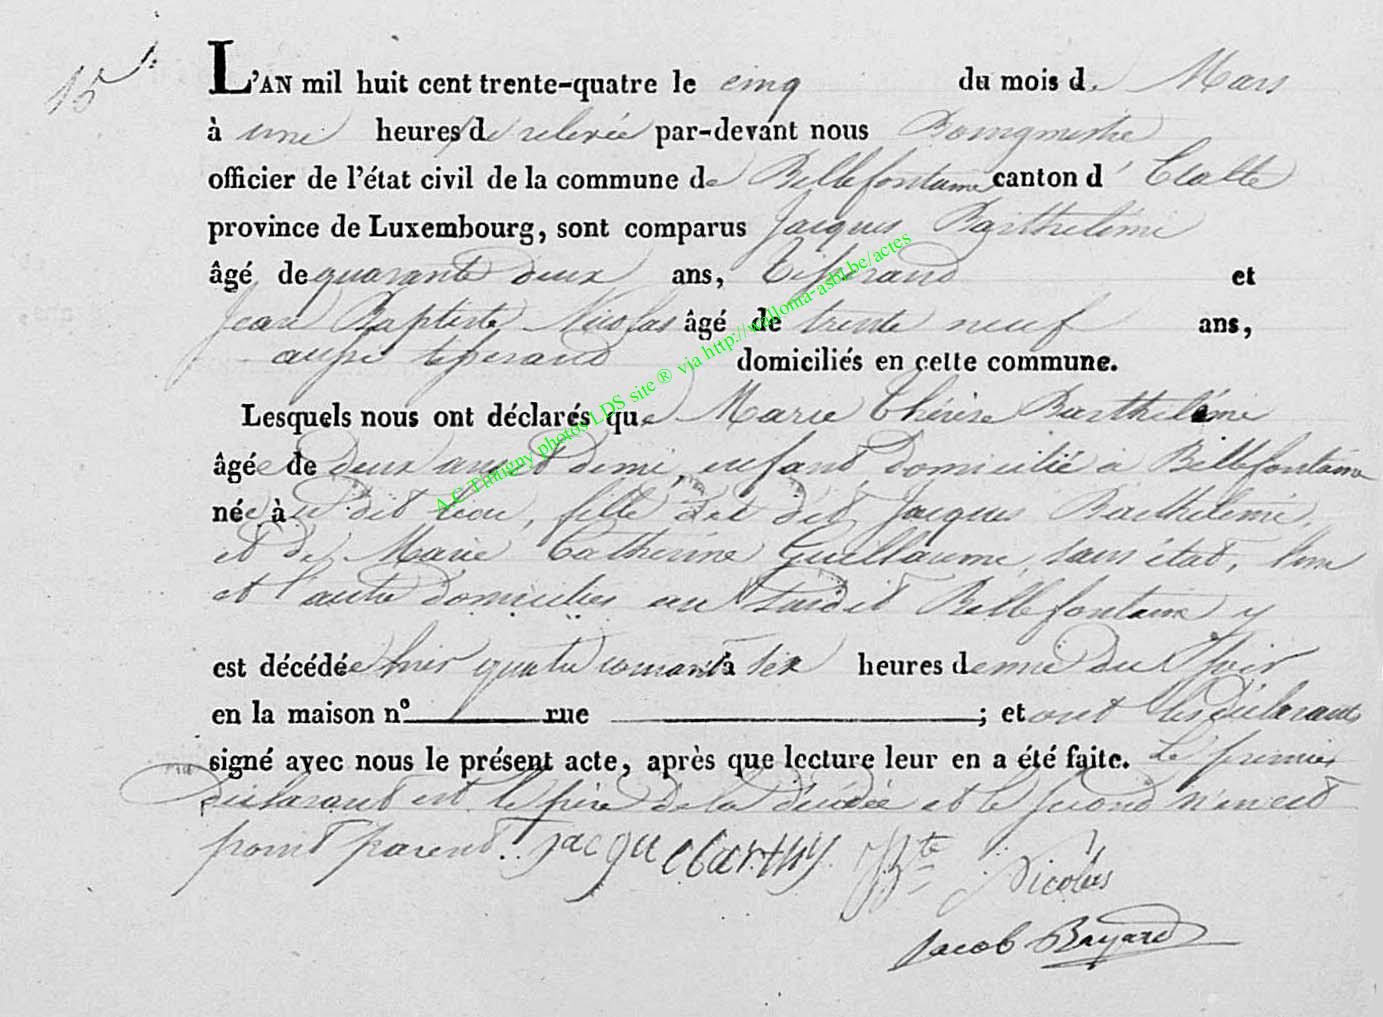 15
L'AN mil huit cent trente-quatre le cinq du mois de Mars
à une heures de relevée par-devant nous Bourgmestre
officier de l'état civil de la commune de Bellefontaine canton d'Etalle
province de Luxembourg, sont comparus Jacques Barthelémi
âgé de quarante deux ans, tisserand et
Jean Baptiste Nicolas âgé de trente neuf ans,
aussi tisserand domiciliés en cette commune.
Lesquels nous ont déclarés que Marie Thérèse Barthelémi
âgée de deux ans et demi, enfant domicilié à Bellefontaine
née à dit lieu, fille du dit Jacques Barthelemi,
et de Marie Catherine Guillaume, sans état, l'un
et l'autre domicilies au susdit Bellefontaine y
est décédée hier quatre courant à six heures demie du soir
en la maison n° rue ; et ont les déclarants
signé avec nous le présent acte, après que lecture leur en a été faite. Le premier
déclarant est le père de la décédée et le second n'en est
point parent. jacque barthy Jn Bte Nicolas
Jacob Bayard
A.C Tintigny photos LDS site ® via http://wallonia-asbl.be/actes